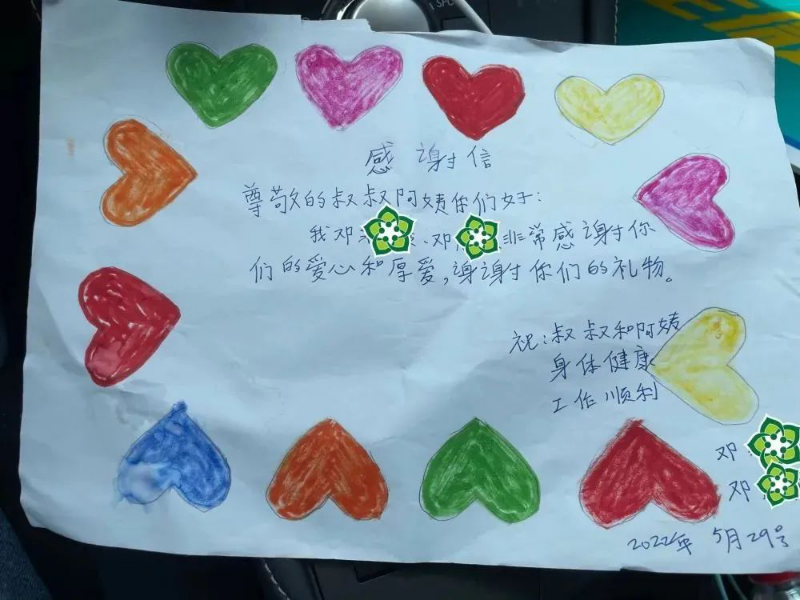 感谢信
尊敬的叔叔阿姨你们好:
我邓、邓非常感谢你
们的爱心和厚爱,谢谢你们的礼物。
祝:叔叔和阿姨
身体健康
工作顺利
邓
邓
2022年 5月29号